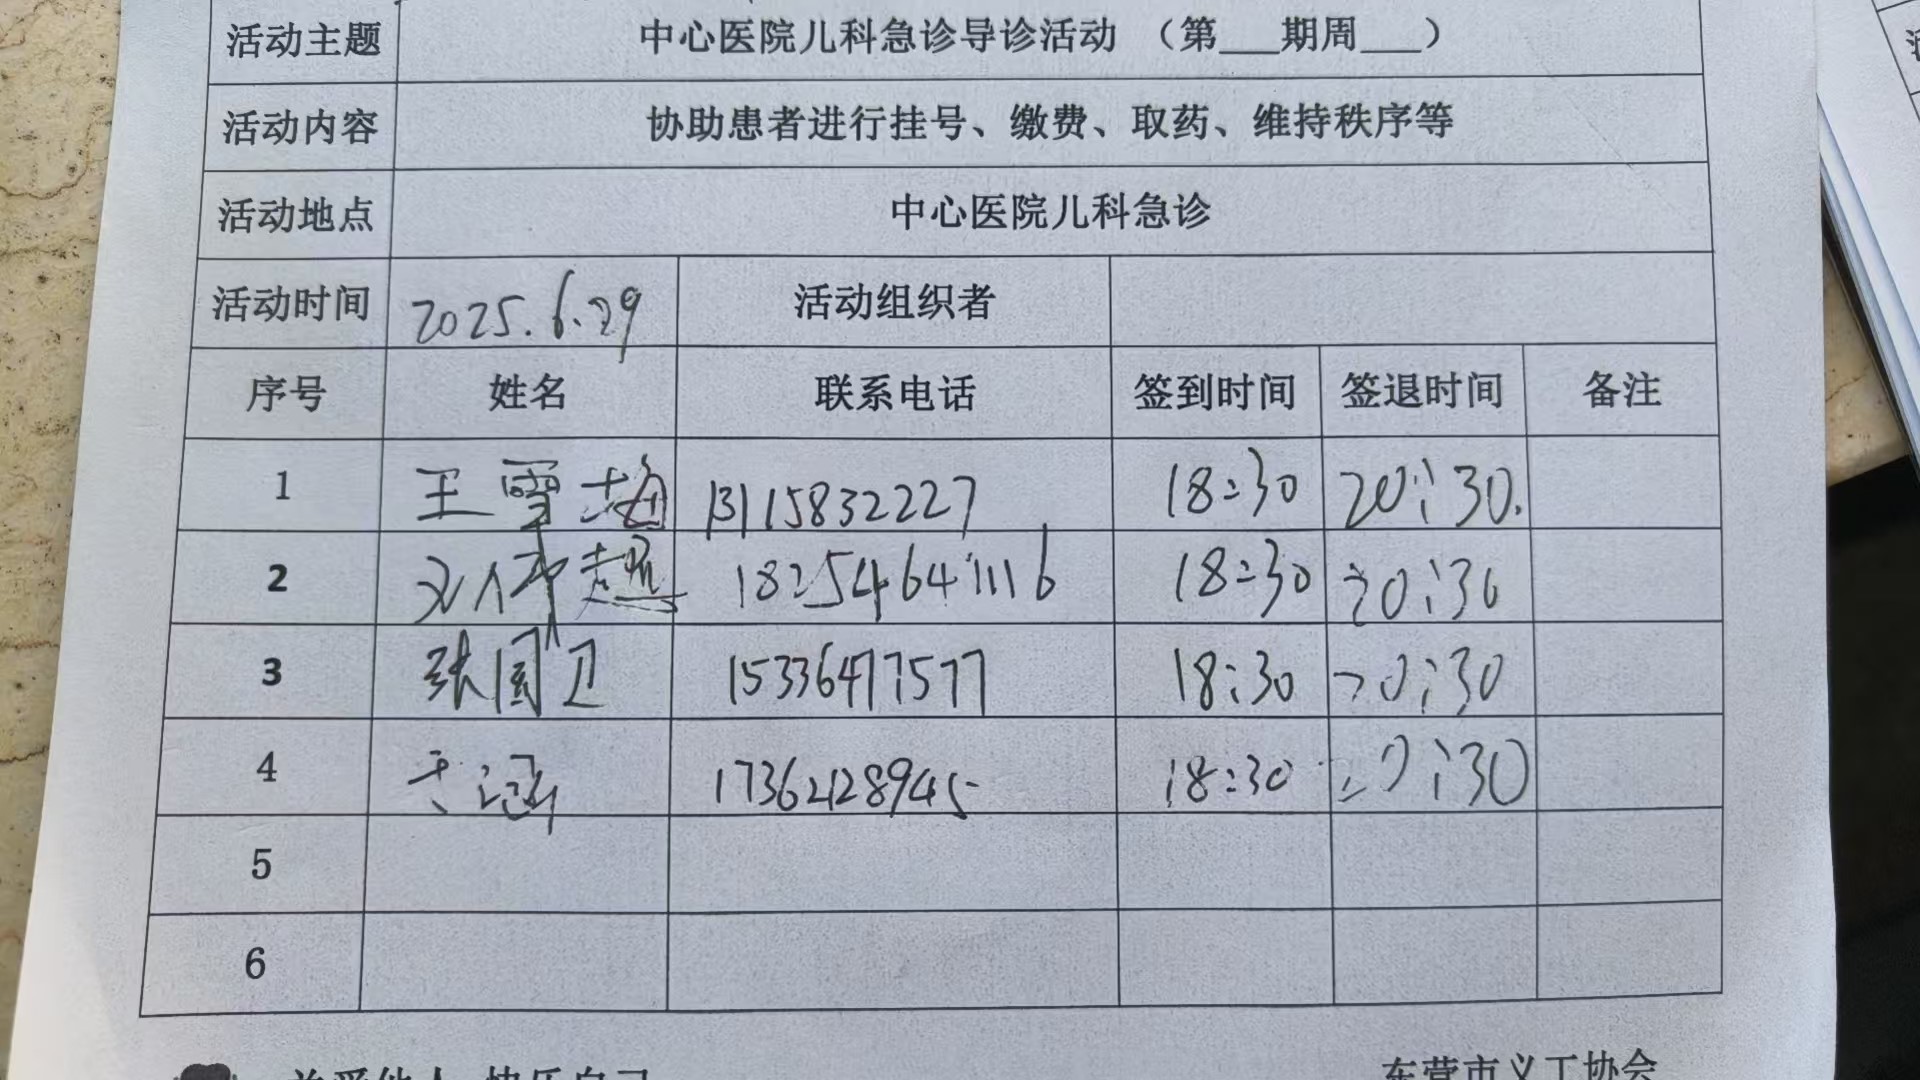 活动主题 中心医院儿科急诊导诊活动 （第___期周___）
活动内容 协助患者进行挂号、缴费、取药、维持秩序等
活动地点 中心医院儿科急诊
活动时间 2025.6.29 活动组织者
序号 姓名 联系电话 签到时间 签退时间 备注
1 王雪梅 13115832227 18:30 20:30.
2 刘伟超 18254641116 18:30 20:30
3 张国卫 15336477577 18:30 20:30
4 于涵 17362128945 18:30 20:30
5
6
关爱他人 快乐自己
东营市义工协会